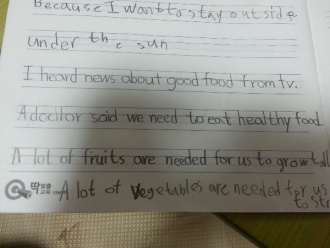 Because I want to stay outside
under the sun
I heard news about good food from tv.
A doctor said we need to eat healthy food.
A lot of fruits are needed for us to grow tall
A lot of vegetables are needed for us
to str